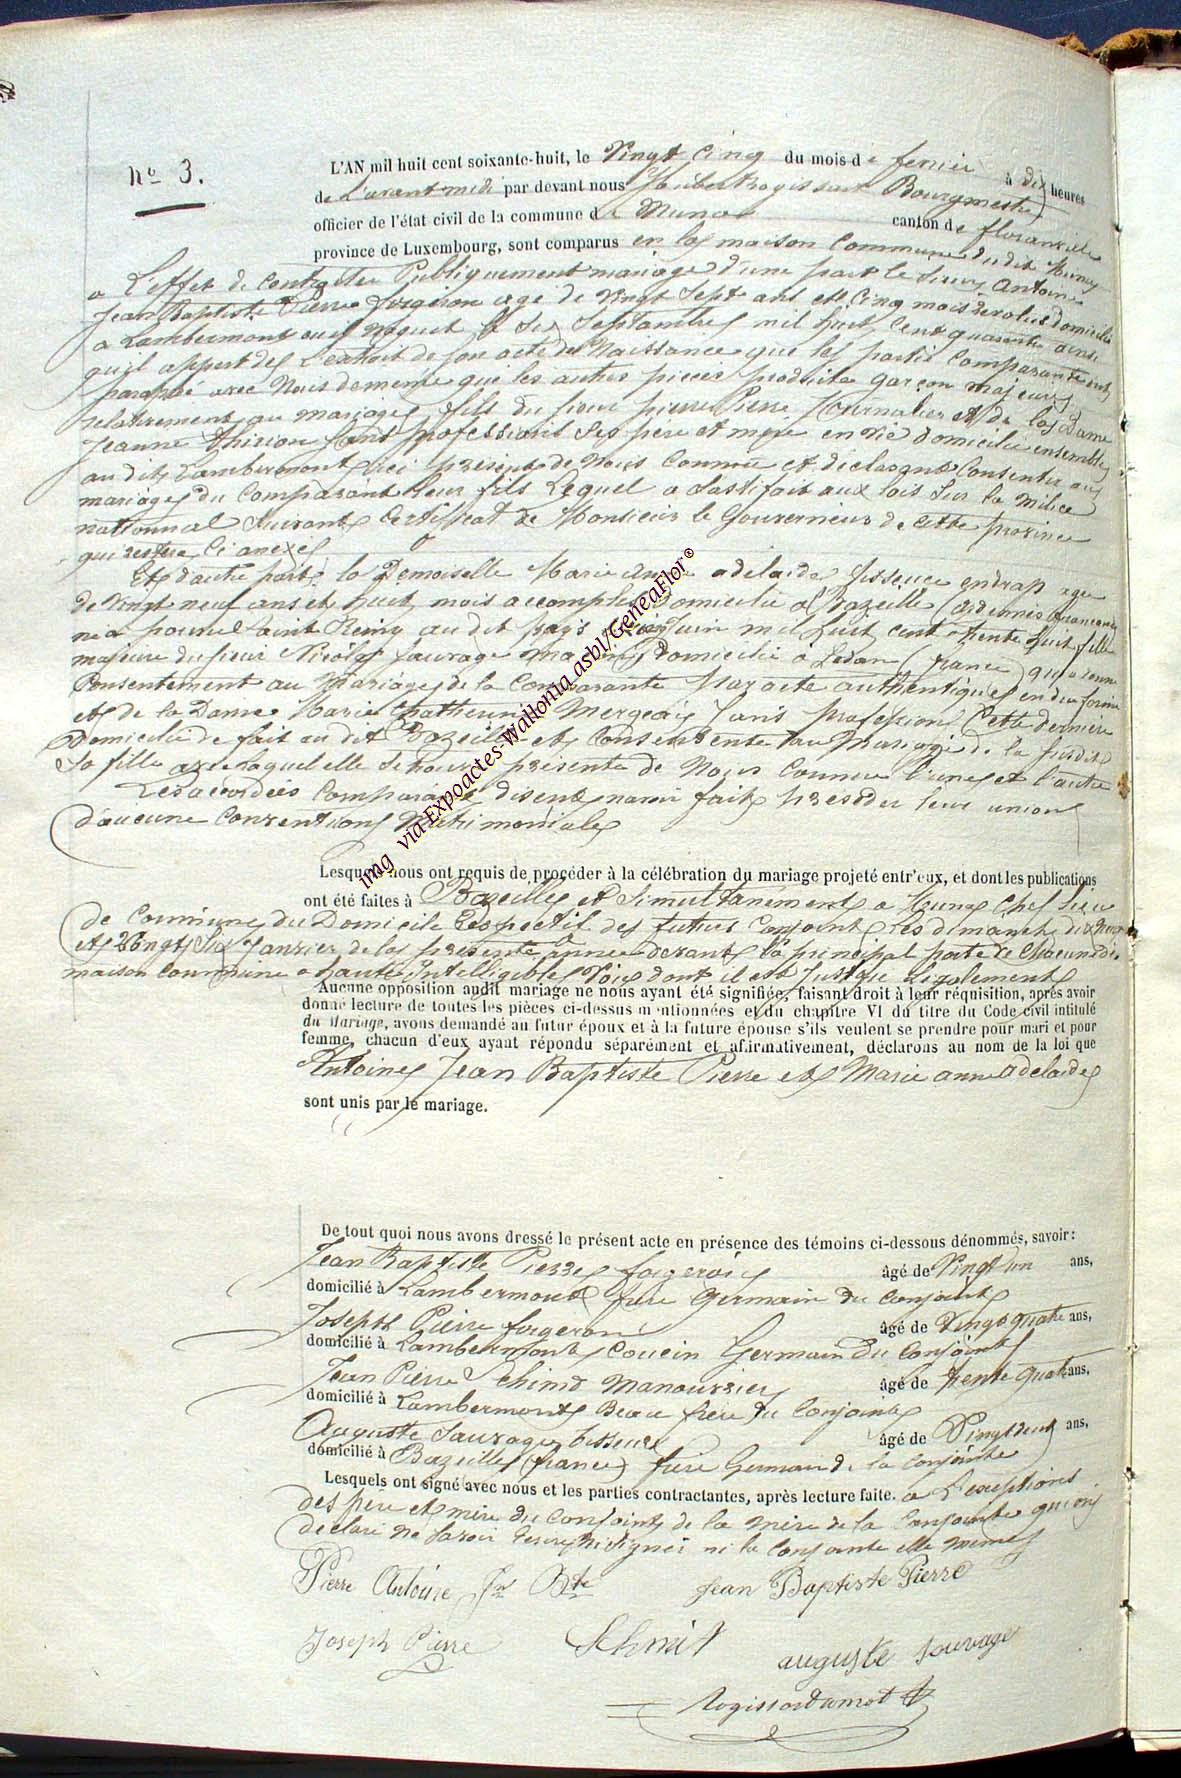 No 3.
L'AN mil huit cent soixante-huit, le Vingt Cinq du mois de fevrier à dix heures
de L'avant midi par devant nous Hubert Rogissart Bourgmestre
officier de l'état civil de la commune de Muno canton de florenville
province de Luxembourg, sont comparus en la maison Commune du dit Muno
a L'effet de Contracter Publiquement mariage d'une part le Sieur Antoine
Jean Baptiste Pierre forgeron agé de Vingt Sept ans et Cinq mois revolus domicilié
a Lambermont ou il naquit le Six Septembre mil huit Cent quarante ainsi
qu'il appert de L'extrait de son acte de Naissance que les partis Comparante ont
paraphé avec Nous de meme que les autres pieces produite garçon majeur
relativement au mariage, fils du sieur pierre Pierre Journalier et de la Dame
Jeanne thirion sans profession Ses pere et mere en vie domicilié ensemble
au dit Lambermont ici present de Nous Connue et declarant Consentir au
mariage du Comparant leur fils Lequel a Satisfait aux lois Sur la Milice
national Suivant Certificat de Monsieur le Gouverneur de Cette province
qui restera Ci anexé
Et d'autre part la Demoiselle Marie Anne adelaide tisseuse en drap agee
de Vingt neuf ans et huit mois accomplis Domicilié a Bazeille (Ardennes francaise)
née a pourru Saint Remy au dit pays Juin mil huit cent trente huit fille
majeure du sieur Nicolas Sauvage domicilié a Sedan (france) qui a donné
Consentement au Mariage de la Comparante par acte authentique en due forme
et de la Dame Marie Catherine Mergeai Sans profession Cette derniere
Domicilié de fait au dit Bazeille et Consentente au Mariage de la susdite
Sa fille avec laquelle elle Se trouve presente de Nous Connue l'une et l'autre
Les accordées Comparants disent n'avoir fait preceder leur union
d'aucune Conventions Matrimoniale
Lesquels nous ont requis de procéder à la célébration du mariage projeté entr'eux, et dont les publications
ont été faites à Bazeille et Simultanement a Muno Chef lieu
de Commune du Domicile Respectif des futurs Conjoints les dimanche dix Neuf
et Vingt Six Janvier de la presente année devant la principal porte de Chacune des
maison Commune a haute et intelligible Voix dont il est Justifié Légalement
Aucune opposition audit mariage ne nous ayant été signifiée, faisant droit à leur réquisition, après avoir
donné lecture de toutes les pièces ci-dessus mentionnées et du chapitre VI du titre du Code civil intitulé
du Mariage, avons demandé au futur époux et à la future épouse s'ils veulent se prendre pour mari et pour
femme, chacun d'eux ayant répondu séparément et affirmativement, déclarons au nom de la loi que
Antoine Jean Baptiste Pierre et Marie anne Adelaide
sont unis par le mariage.
De tout quoi nous avons dressé le présent acte en présence des témoins ci-dessous dénommés, savoir:
Jean Baptiste Pierre forgeron âgé de Vingt un ans,
domicilié à Lambermont frere Germain du Conjoint
Joseph Pierre forgeron âgé de Vingt quatre ans,
domicilié à Lambermont Cousin Germain du Conjoint
Jean Pierre Manouvrier âgé de trente quatre ans,
domicilié à Lambermont Beau frere du Conjoint
Auguste Sauvage tisseur âgé de Vingt deux ans,
domicilié à Bazeille (france) frere Germain de la Conjointe
Lesquels ont signé avec nous et les parties contractantes, après lecture faite. a L'exeption
des pere et mere du Conjoint de la mere de la Conjointe qui on
declaré Ne Savoir Ecrire Ni Signer ni la Conjointe elle meme
Pierre Antoine Jn Bte Jean Baptiste Pierre
Joseph Pierre Schmit auguste Sauvage
Rogissart
img via Expoactes-Wallonia asbl/GeneaFlor®